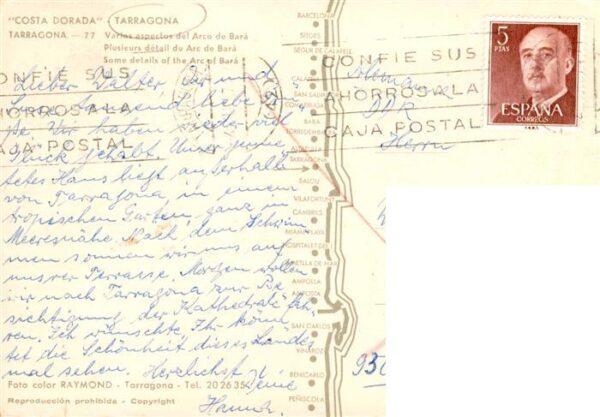 "COSTA DORADA" - TARRAGONA
TARRAGONA — 77 Varios aspectos del Arco de Bará
Plusieurs détail du Arc de Bará
Some details of the Arc of Bará
Lieber Walter, Dir und
tausend liebe
Wir haben wieder viel
Glück gehabt. Unser gemie
tetes Haus liegt außerhalb
von Tarragona, in einem
tropischen Garten, ganz in
Meeresnähe. Nach dem Schwim
men sonnen wir uns auf
unsrer Terrasse. Morgen wollen
wir nach Tarragona zur Be
sichtigung der Kathedrale fah
ren. Ich wünschte Ihr könn
tet die Schönheit dieses Landes
mal sehen. Herzlichst
Deine
Foto color RAYMOND - Tarragona - Tel. 20 26 35
Reproducción prohibida - Copyright
BARCELONA
SITGES
SEGUR DE CALAFELL
CALAFELL
SAN SALVADOR
COMARRUGA
BARA
TORREDEMBARRA
ALTAFULLA
TARRAGONA
SALOU
VILAFORTUNY
CAMBRILS
MIAMI PLAYA
HOSPITALET DEL I.
AMETLLA DE MAR
AMPOLLA
AMPOSTA
SAN CARLOS
VINAROZ
BENICARLO
PEÑISCOLA
CONFIE SUS
AHORROS A LA
CAJA POSTAL
CONFIE SUS
AHORROS A LA
CAJA POSTAL
5
PTAS
ESPAÑA
CORREOS
DDR
Herrn